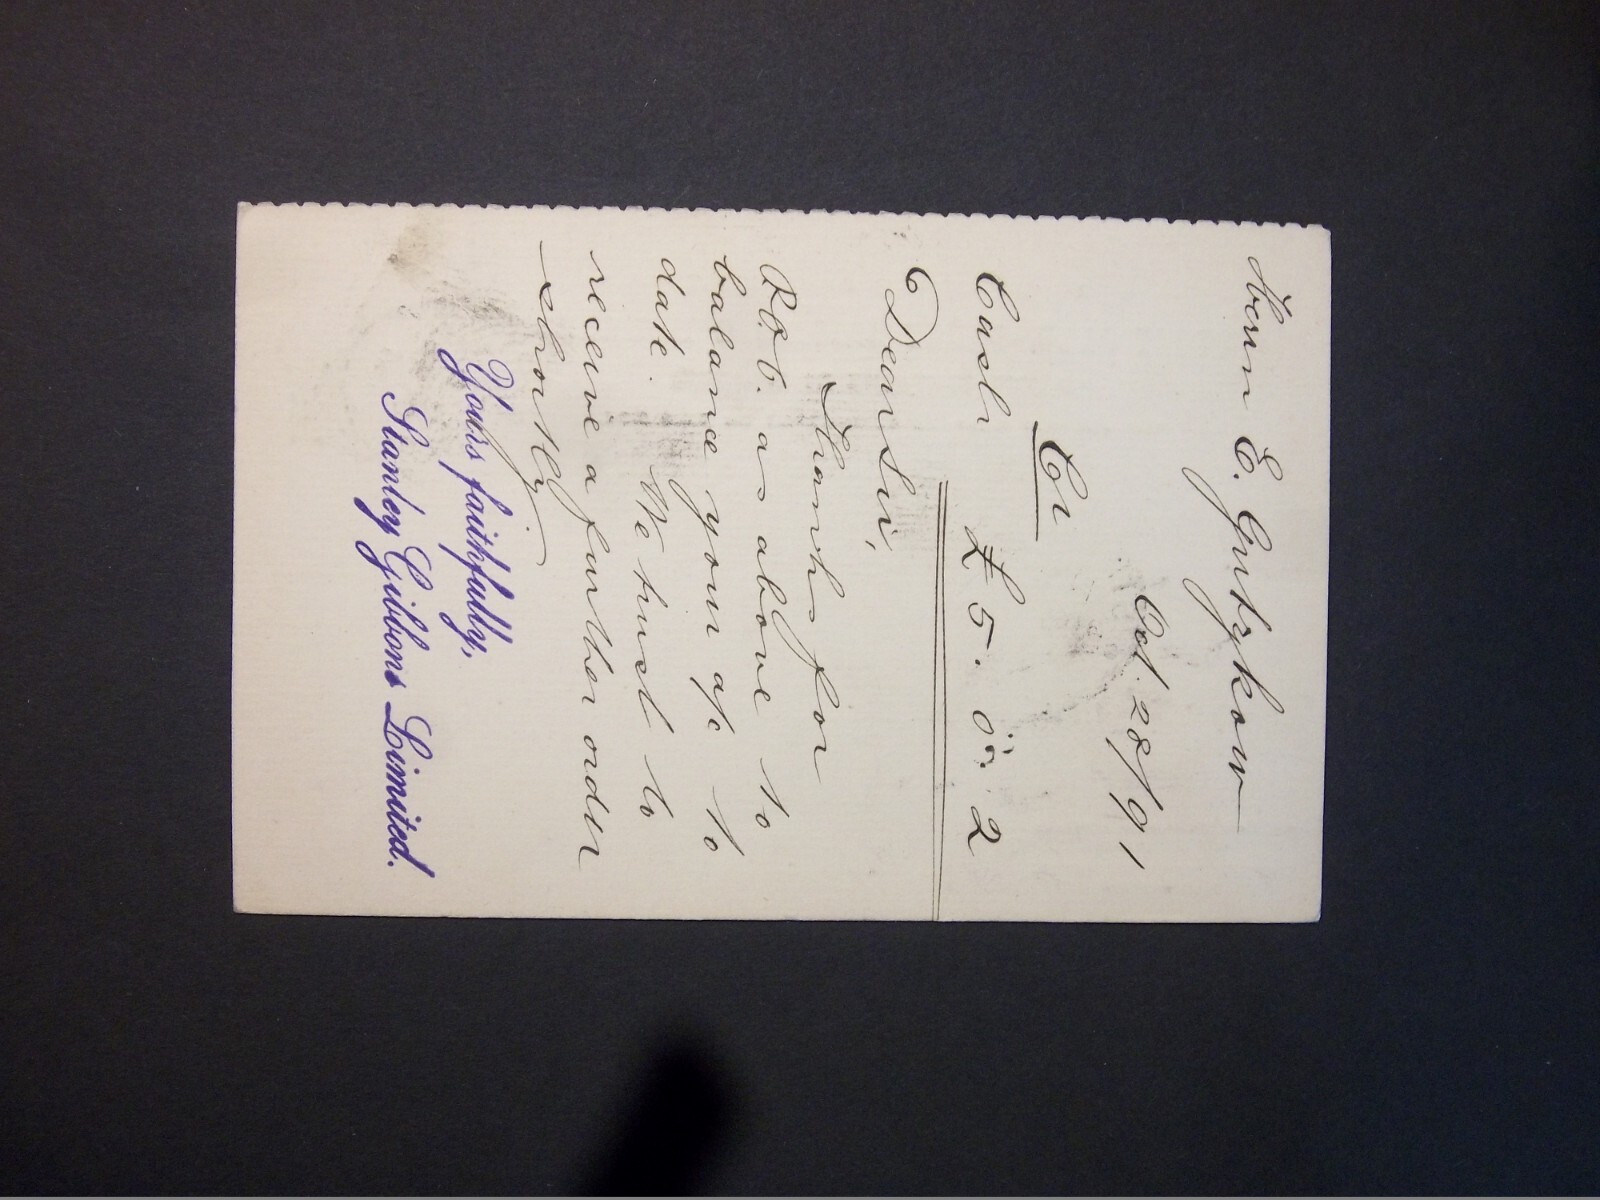 Herrn E. Gutzkow
Oct. 28/91
Cr
Cash £ 5. 0. 2
Dear Sir,
Thanks for
P.O. as above to
balance your a/c to
date. We trust to
receive a further order
shortly
Yours faithfully,
Stanley Gibbons Limited.